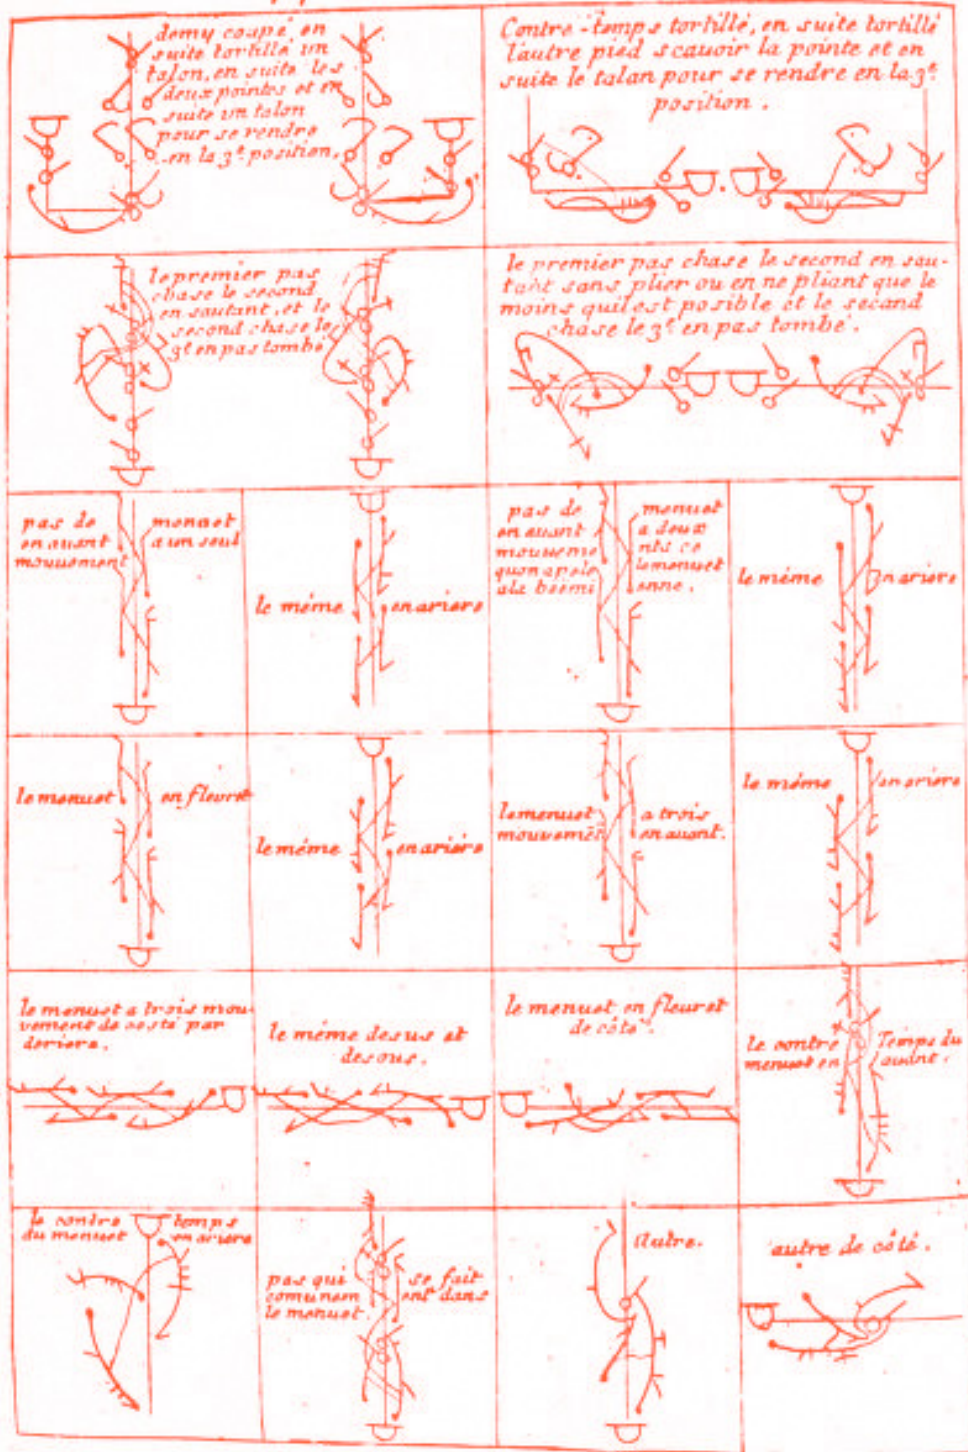 demy coupé, en
suite tortillé un
talon, en suite les
deux pointes et en
suite un talon
pour se rendre
en la 3e position.
Contre-temps tortillé, en suite tortillé
l'autre pied scauoir la pointe et en
suite le talan pour se rendre en la 3e
position.
le premier pas
chase le second
en sautant, et le
second chase le
3e en pas tombé
le premier pas chase le second en sau-
tant sans plier ou en ne pliant que le
moins quil est posible et le second
chase le 3e en pas tombé.
pas de menuet
en auant a un seul
mouuement
le méme en ariere
pas de menuet
en auant a deux
mouueme nts ce
quon apele le menuet
ala boëmi enne.
le méme en ariere
le menuet en fleuret
le méme en ariére
le menuet a trois
mouuemēs en auant.
le méme en ariere
le menuet a trois mou-
vement de costé par
deriere.
le méme desus et
desous.
le menuet en fleuret
de côté.
le contre Temps du
menuet en auant.
le contre temps
du menuet en ariere
pas qui se fait
comunem ent dans
le menuet.
Autre.
autre de côté.